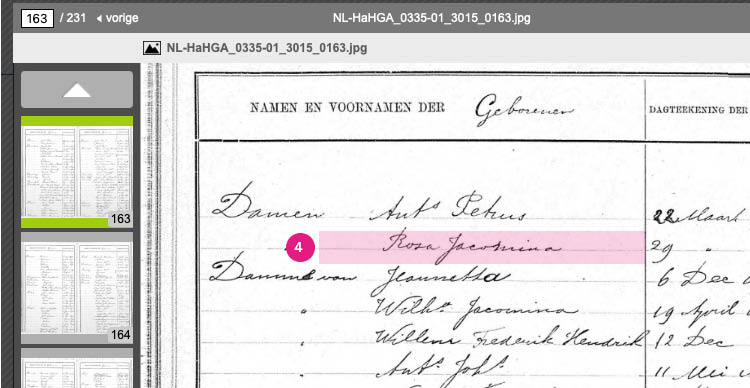 163 / 231 vorige NL-HaHGA_0335-01_3015_0163.jpg
NL-HaHGA_0335-01_3015_0163.jpg
NAMEN EN VOORNAMEN DER Geborenen DAGTEEKENING DER
Damen Ants Petrus 22 Maart
4 Rosa Jacomina 29 "
Damme van Jeannetta 6 Dec
" Wilha Jacomina 19 April
" Willem Frederik Hendrik 12 Dec
" Ants Johs 11 Mei
163
164